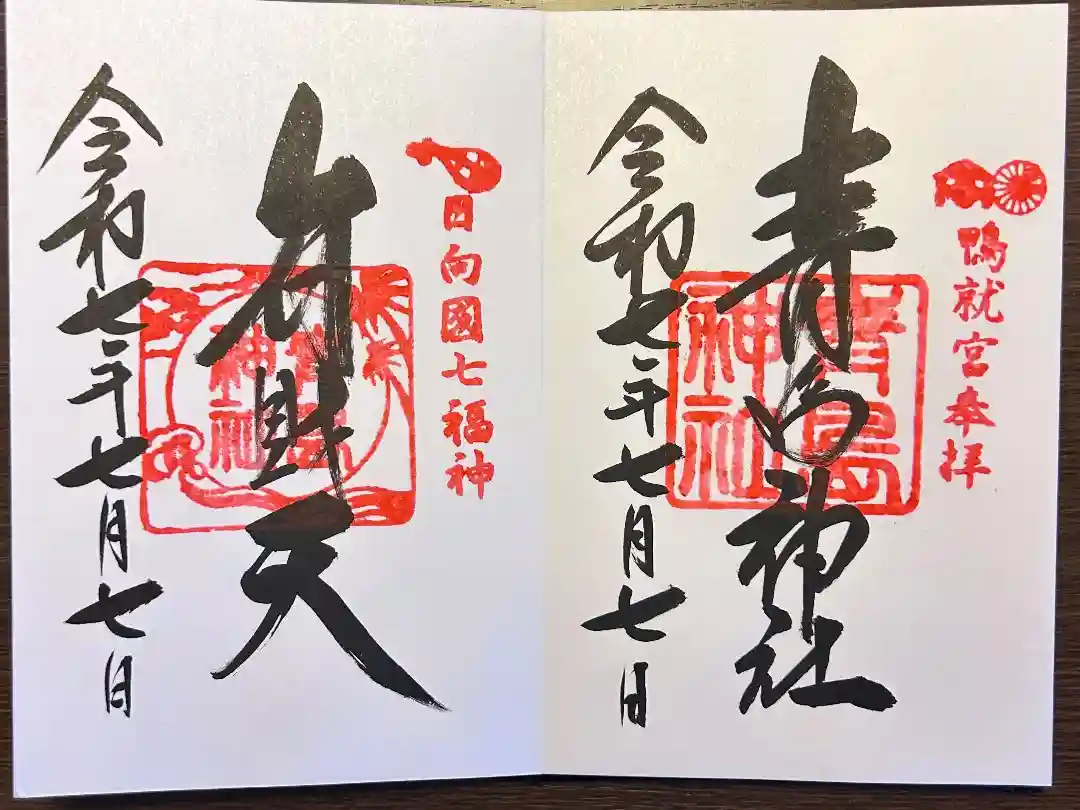 鴨就宮奉拝
青島神社
青島神社
令和七年七月七日
日向國七福神
弁財天
青島神社
令和七年七月七日